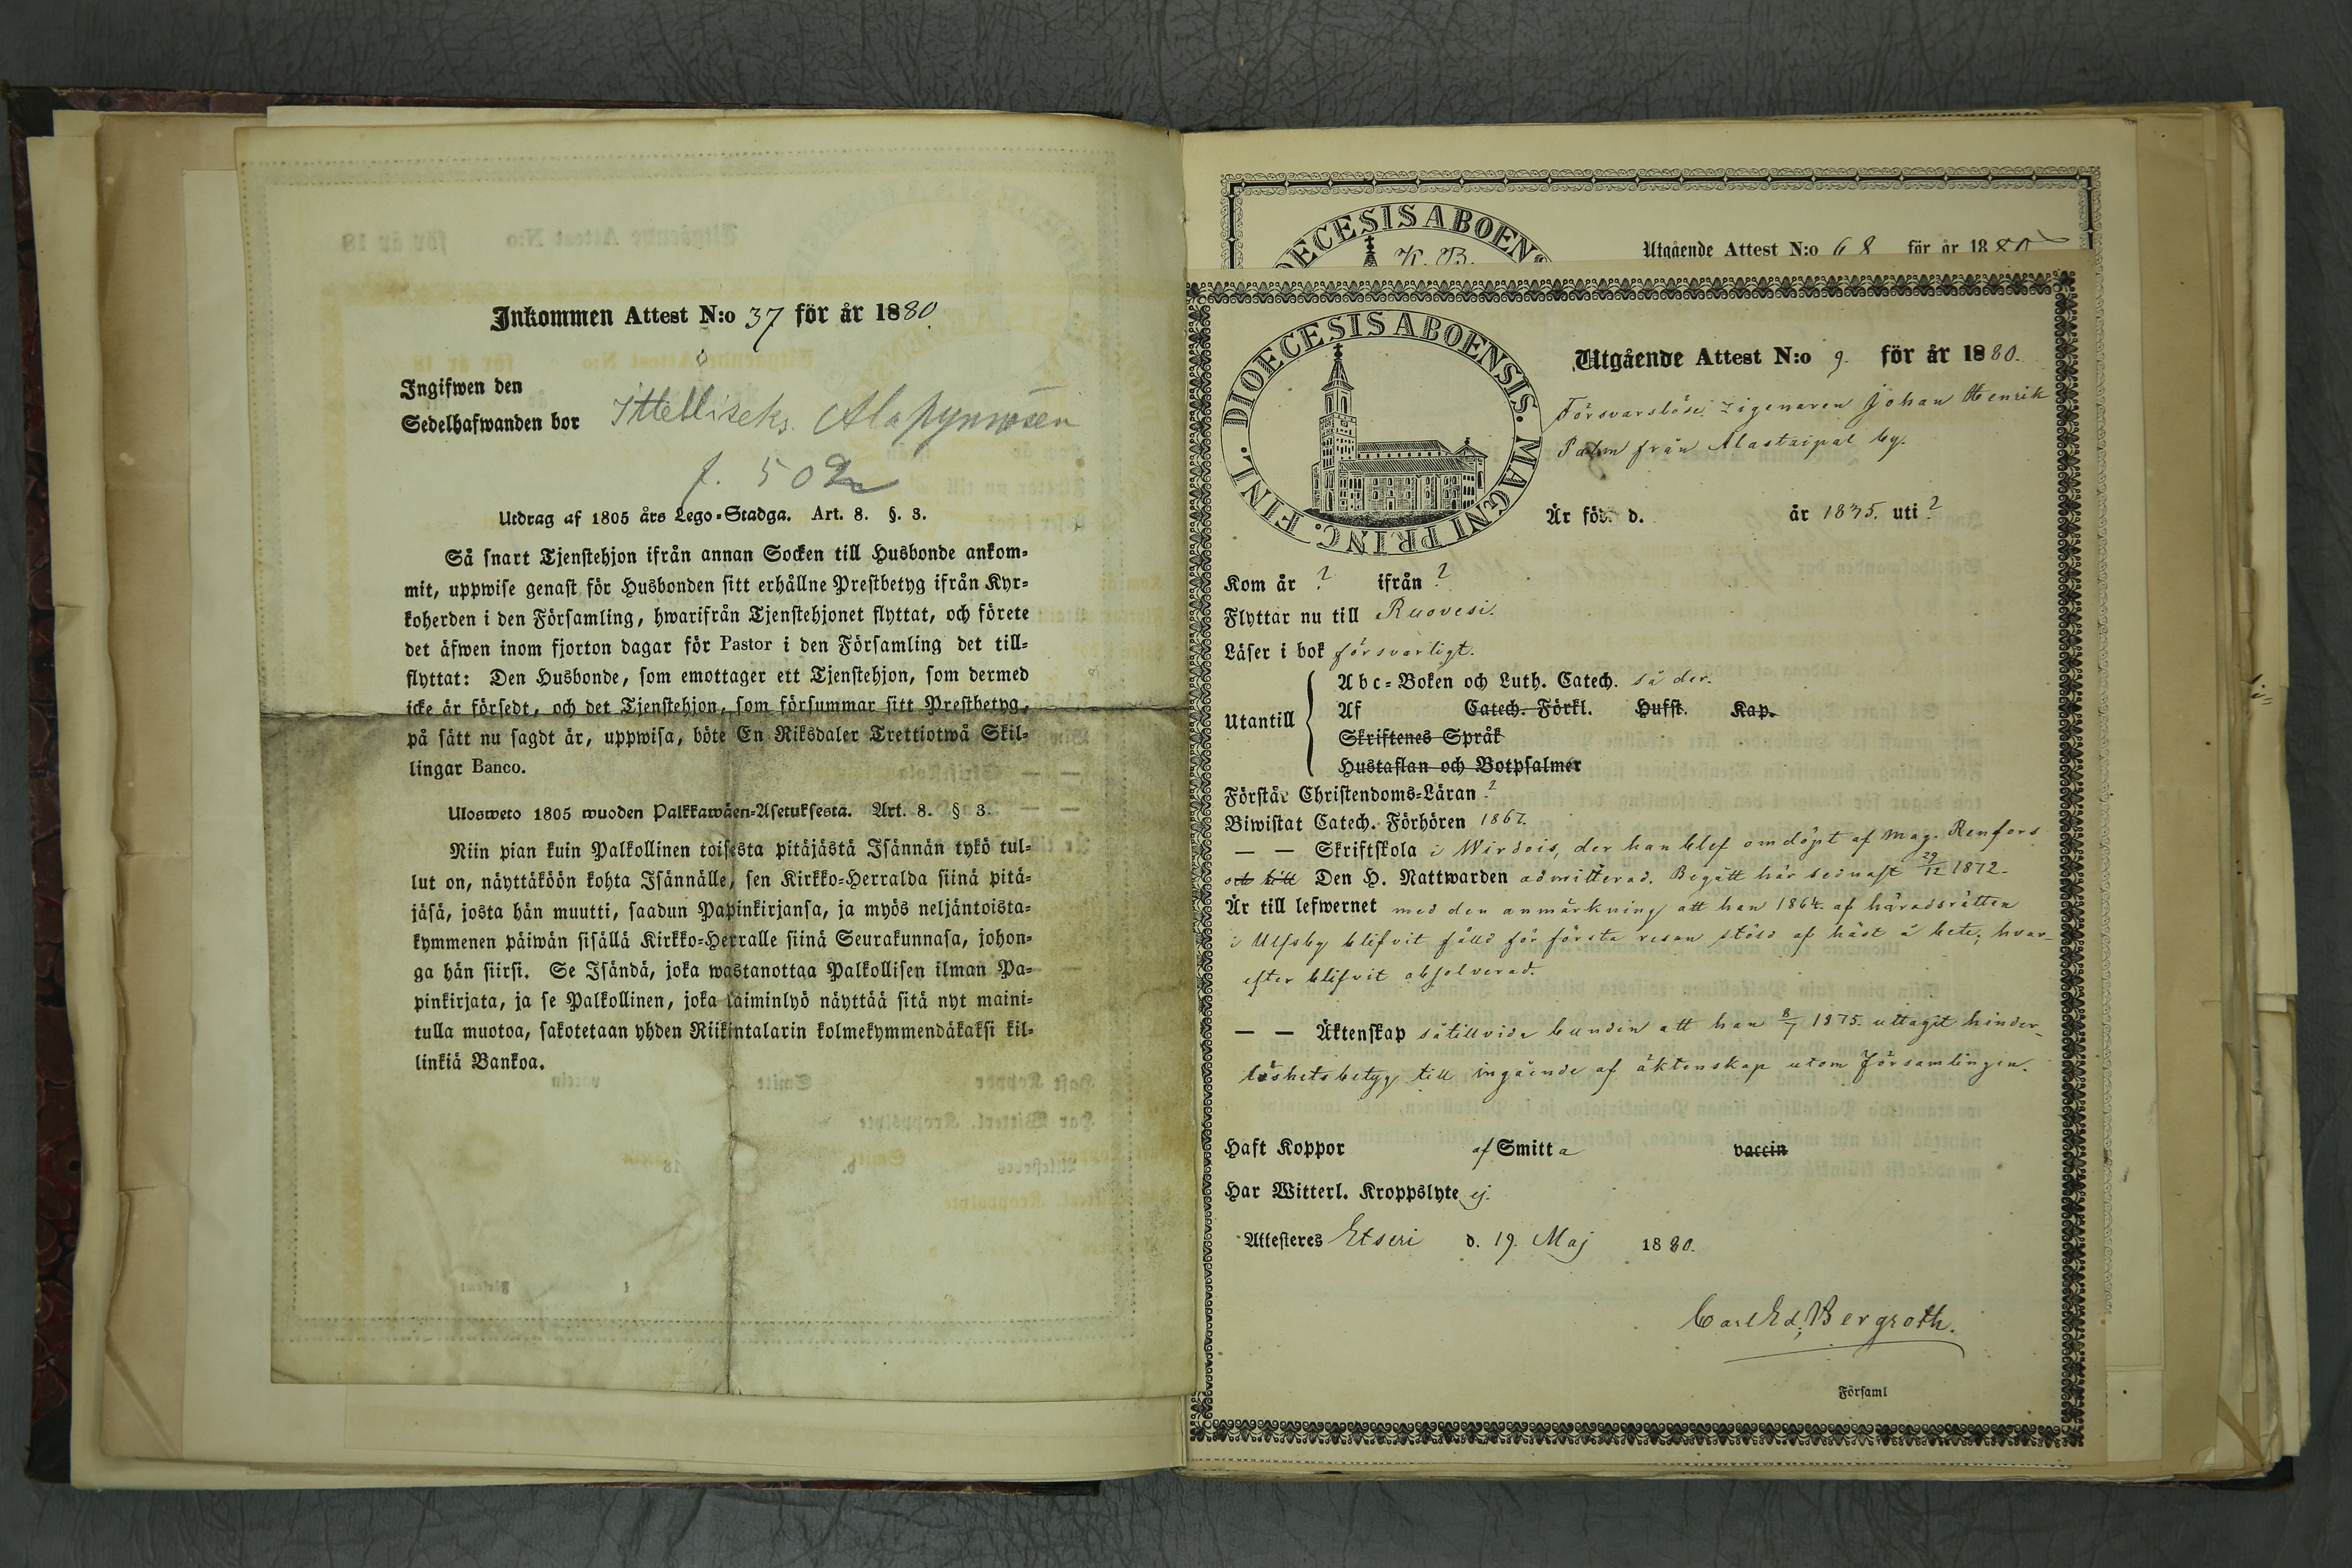 Inkommen Attest N:o 37 för år 1880
Ingifwen den
Sedelhafwanden bor
f. 502
Utdrag af 1805 års Lego-Stadga. Art. 8. §. 3.
Så snart Tjenstehjon ifrån annan Socken till Husbonde ankom-
mit, uppwise genast för Husbonden sitt erhållne Prestbetyg ifrån Kyr-
koherden i den Församling, hwarifrån Tjenstehjonet flyttat, och förete
det äfwen inom fjorton dagar för Pastor i den Församling det till-
flyttat: Den Husbonde, som emottager ett Tjenstehjon, som dermed
icke är försedt, och det Tjenstehjon, som försummar sitt Prestbetyg,
på sätt nu sagdt är, uppwisa, böte En Riksdaler Trettiotwå Skil-
lingar Banco.
Ulosweto 1805 wuoden Palkkawäen-Asetuksesta. Art. 8. § 3.
Niin pian kuin Palkollinen toisesta pitäjästä Isännän tykö tul-
lut on, näyttäköön kohta Isännälle, sen Kirkko-Herralda siinä pitä-
jäsä, josta hän muutti, saadun Papinkirjansa, ja myös neljäntoista-
kymmenen päiwän sisällä Kirkko-Herralle siinä Seurakunnasa, johon-
ga hän siirsi. Se Isändä, joka wastanottaa Palkollisen ilman Pa-
pinkirjata, ja se Palkollinen, joka laiminlyö näyttää sitä nyt maini-
tulla muotoa, sakotetaan yhden Riikintalarin kolmekymmendäkaksi kil-
linkiä Bankoa.
DIOECESIS ABOEN
K. B.
Utgående Attest N:o 68 för år 1880
DIOECESIS ABOENSIS. MAGNI PRINC. FINL.
Utgående Attest N:o 9. för år 1880.
Försvarslöse zigenaren Johan Henrik
Palm från Alastaipal by.
Är föd. d. år 1835. uti ?
Kom år ? ifrån ?
Flyttar nu till Ruovesi.
Läser i bok försvarligt.
Utantill
Abc-Boken och Luth. Catech. så der.
Af Catech. Förkl. Hufst. Kap.
Skriftenes Språk
Hustaflan och Botpsalmer
Förstår Christendoms-Läran ?
Biwistat Catech. Förhören 1867.
— — Skriftskola i Wirdois, der han blef omdöpt af Mag. Renfors
och till Den H. Nattwarden admitterad. Begått här sednast 29/12 1872.
Är till lefwernet med den anmärkning att han 1864. af häradsrätten
i Ulfsby blifvit fälld för första resan stöld af häst å bete; hvar-
efter blifvit absolverad.
— — Äktenskap såtillvida bunden att han 8/7 1875. uttagit hinder-
löshetsbetyg till ingående af äktenskap utom Församlingen.
Haft Koppor af Smitta vaccin
Har Witterl. Kroppslyte ej.
Attesteres Etseri d. 19. Maj 1880.
Carl Ed. Bergroth.
Församl